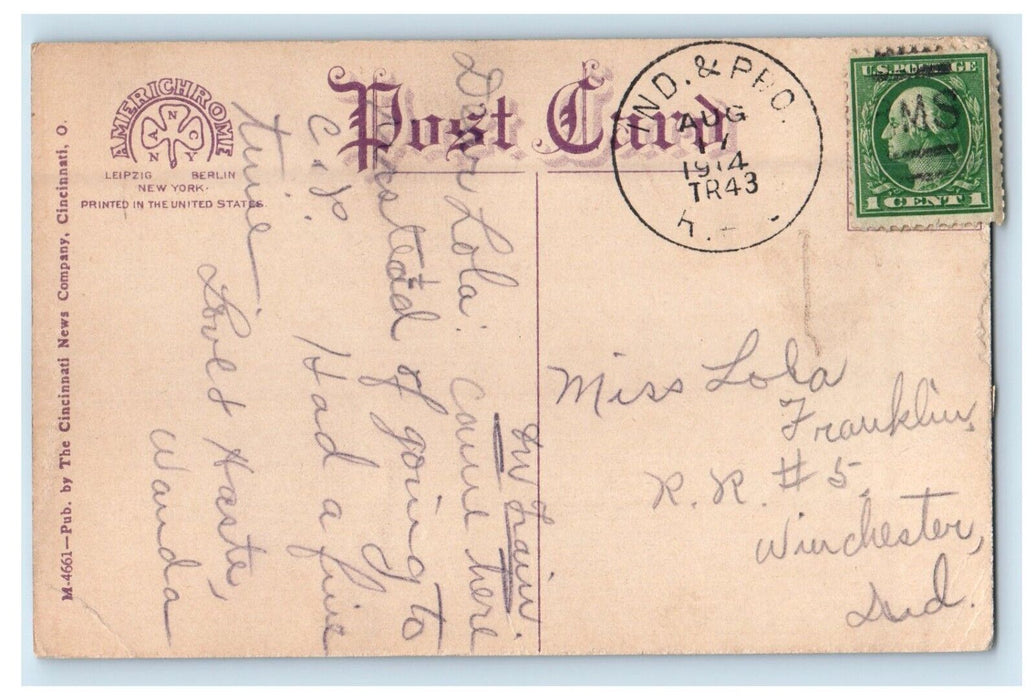 Post Card
AMERICHROME
ANC
NY
LEIPZIG BERLIN
NEW YORK.
PRINTED IN THE UNITED STATES.
M-4661—Pub. by The Cincinnati News Company, Cincinnati, O.
IND. & PEO.
AUG
17
1914
TR43
R.
U.S. POSTAGE
MS
1 CENT 1
On Train.
Dear Lola: Come here
Insstead of going to
C.J. Had a fine
time
Loves Haste,
Wanda
Miss Lola
Franklin,
R. R. #5.
Winchester,
Ind.